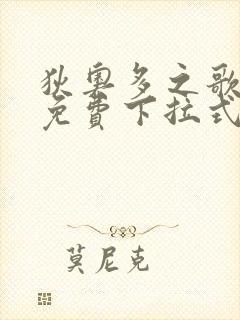 狄奥多之歌
免費下拉式
莫尼克